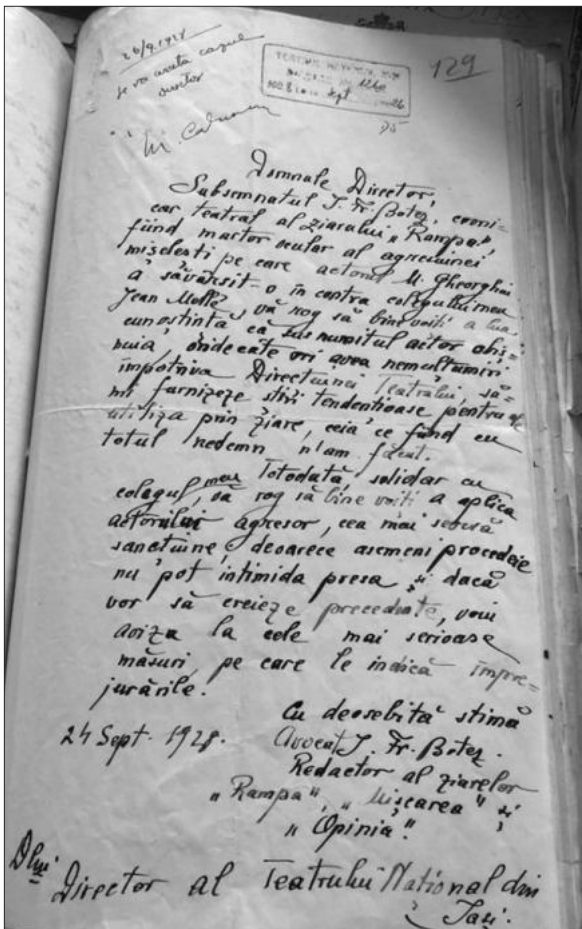 26/9.1928
se va arăta cazul
129
TEATRUL NAȚIONAL
Sept
Domnule Director,
Subsemnatul I. Fr. Botez, croni=
car teatral al ziarului „Rampa",
fiind martor ocular al agresiunei
mișelești pe care actorul M. Gheorghiu
a săvârsit-o în contra colegului meu
Jean Mollé, vă rog să bine voiti a lua
cunostintă că sus numitul actor obis=
nuia, oridecâte ori avea nemultumiri
împotriva Directiunei Teatrului, să-
mi furnizeze stiri tendentioase pentru a le
utiliza prin ziare, ceia ce fiind cu
totul nedemn n'am făcut.
Totodată, solidar cu
colegul meu, vă rog să bine voiti a aplica
actorului agresor, cea mai severă
sanctiune, deoarece asemeni procedeie
nu pot intimida presa și dacă
vor să creieze precedente, voiu
aviza la cele mai serioase
măsuri, pe care le indică împre=
jurările.
Cu deosebită stimă
24 Sept. 1928. Avocat I. Fr. Botez.
Redactor al ziarelor
„Rampa", „Mișcarea" și
„Opinia".
Dlui Director al Teatrului National din
Iași.